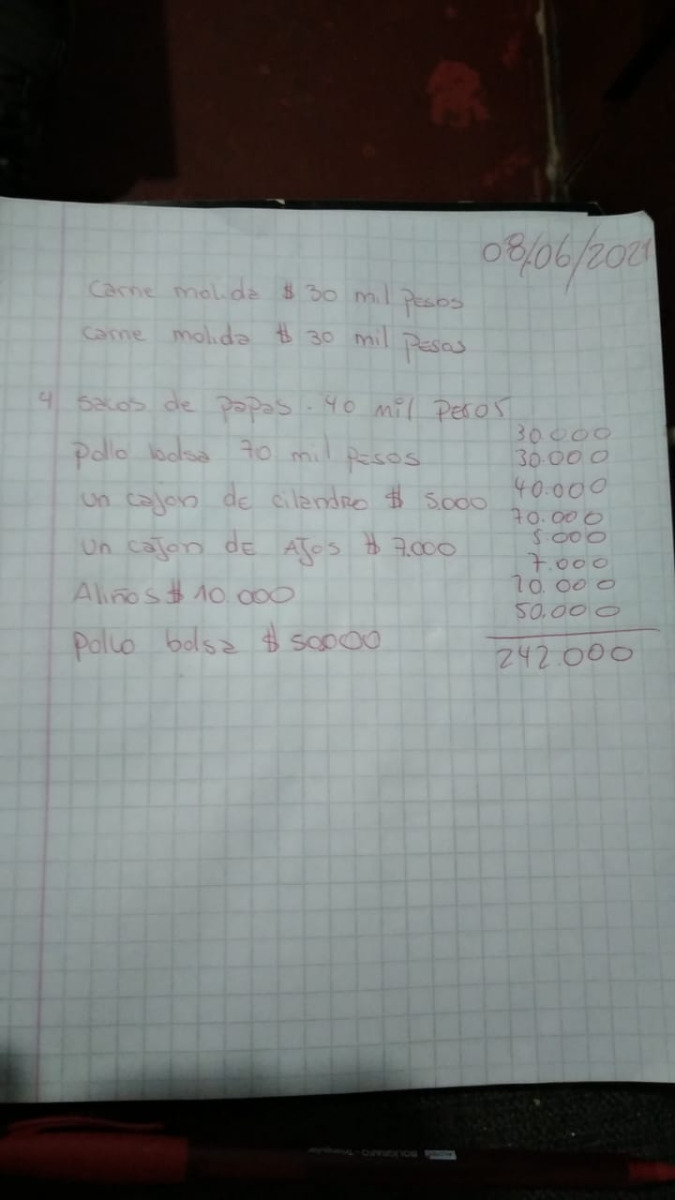 08/06/2021
Carne molida $ 30 mil Pesos
Carne molida $ 30 mil Pesos
4 sacos de papas. 40 mil Pesos
Pollo bolsa 70 mil Pesos
Un cajon de cilandro $ 5.000
Un cajon de Ajos $ 7.000
Aliños $ 10.000
Pollo bolsa $ 50000
30.000
30.000
40.000
70.000
5.000
7.000
10.000
50.000
242.000